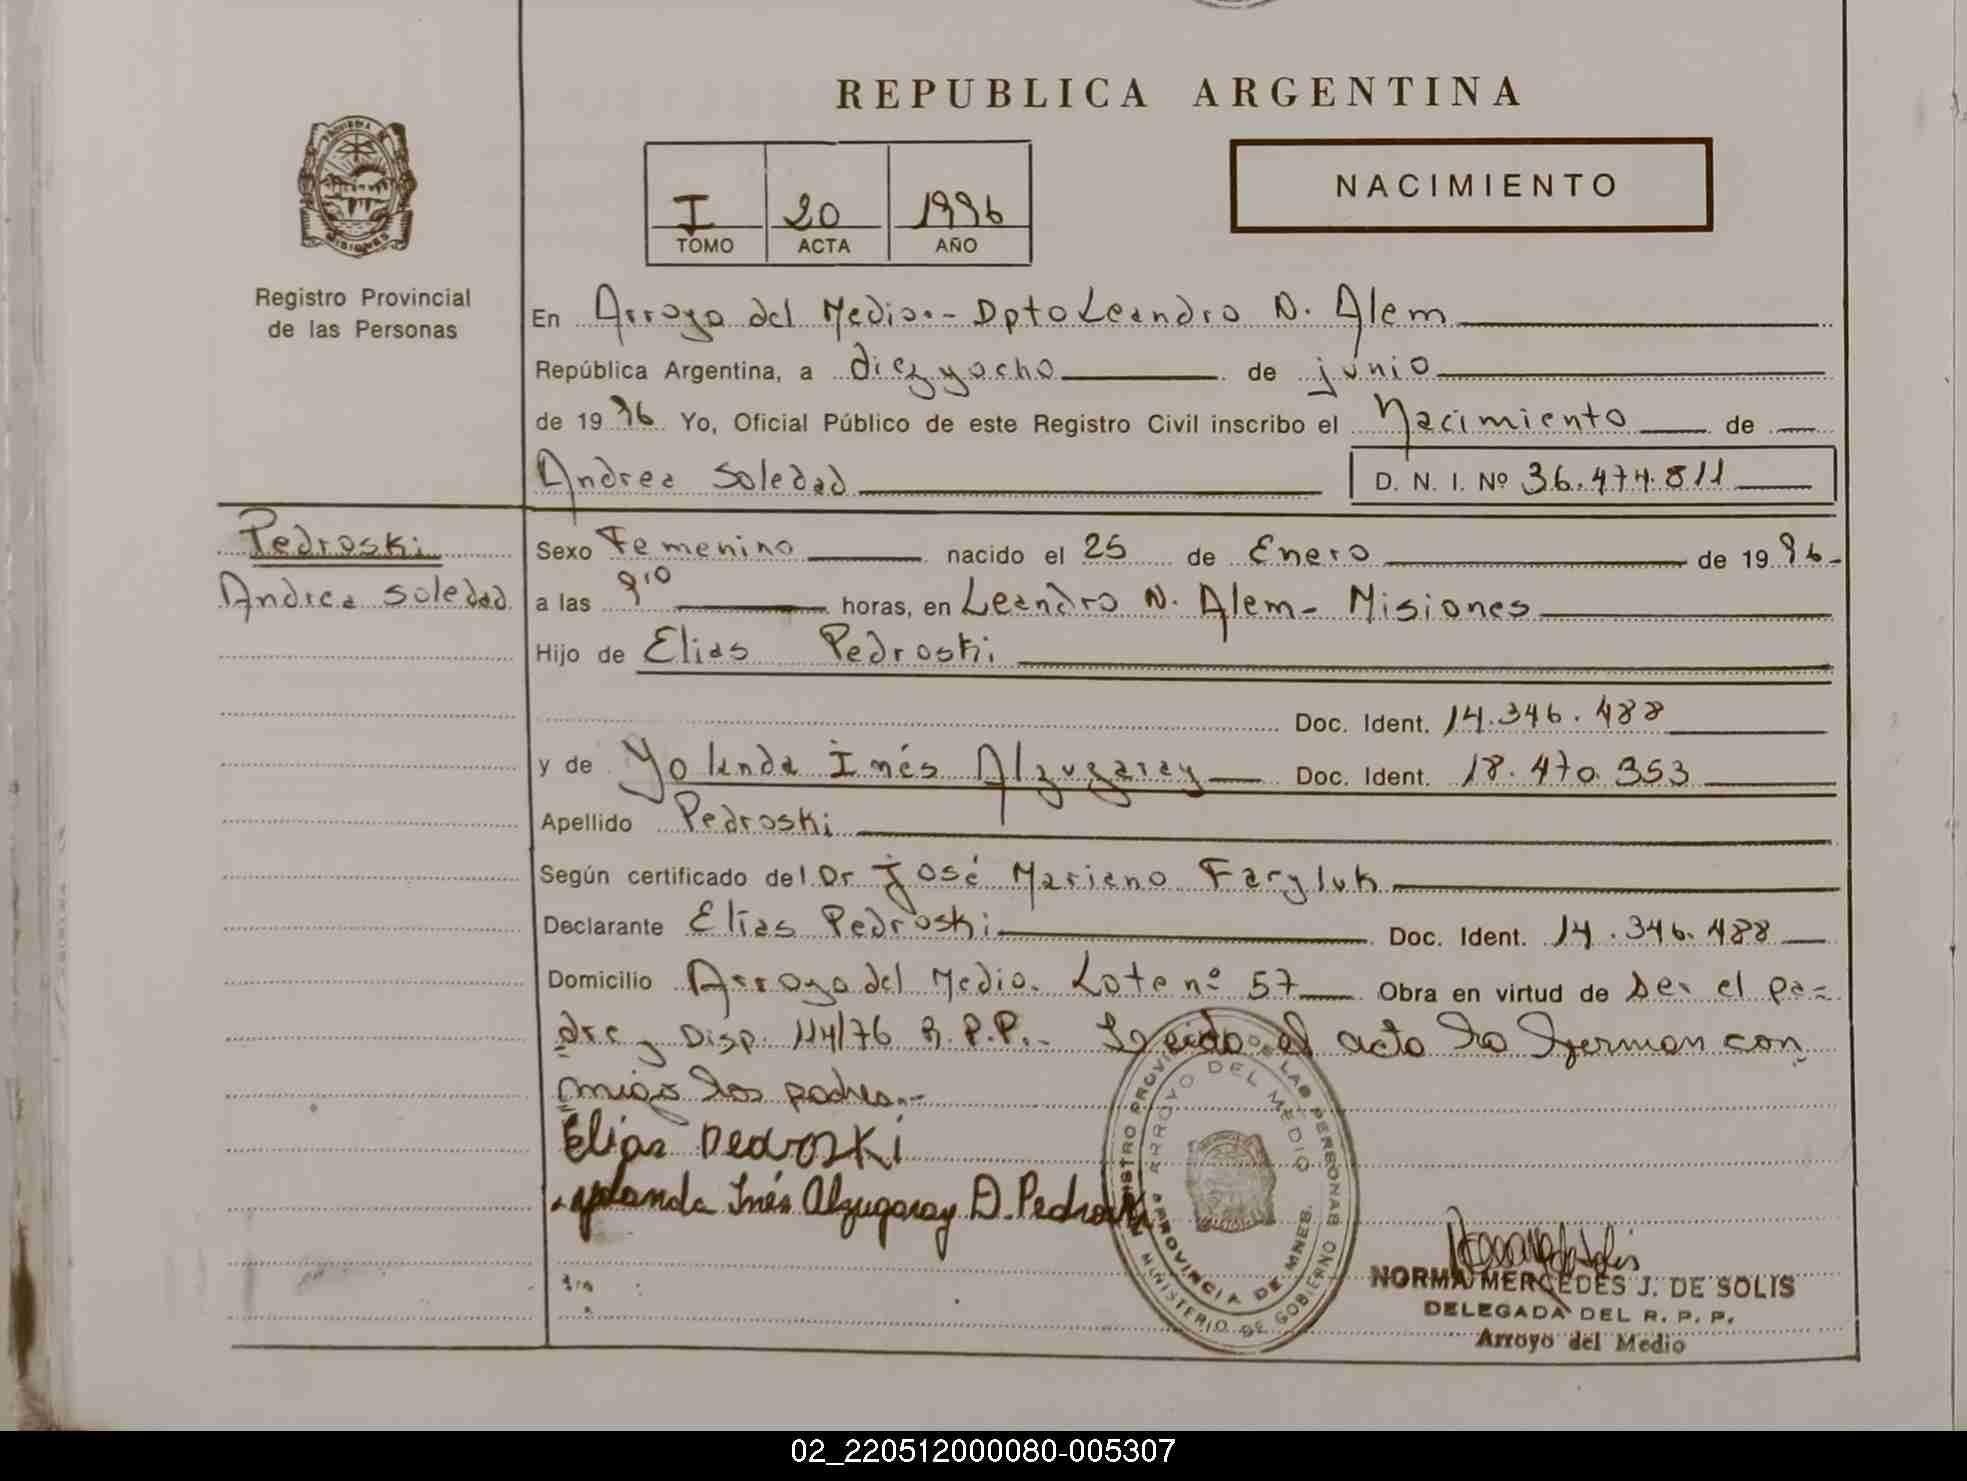 REPUBLICA ARGENTINA
PROVINCIA DE
MISIONES
Registro Provincial
de las Personas
I 20 1996
TOMO ACTA AÑO
NACIMIENTO
En Arroyo del Medio.- Dpto Leandro N. Alem
República Argentina, a diez y ocho de junio
de 1996 Yo, Oficial Público de este Registro Civil inscribo el Nacimiento de
Andrea Soledad D. N. I. Nº 36.474.811
Pedroski
Andrea Soledad
Sexo Femenino nacido el 25 de Enero de 1996-
a las 9'10 horas, en Leandro N. Alem- Misiones
Hijo de Elias Pedroski
Doc. Ident. 14.346.488
y de Yolanda Inés Alzugaray Doc. Ident. 18.470.353
Apellido Pedroski
Según certificado del Dr José Mariano Faryluk
Declarante Elías Pedroski Doc. Ident. 14.346.488
Domicilio Arroyo del Medio. Lote nº 57 Obra en virtud de ser el pa=
dre y Disp. 114/76 R.P.P.- Leido el acta la firman con
migo los padres.-
Elias Pedroski
Yolanda Inés Alzugaray D. Pedroski
REGISTRO PROVINCIAL DE LAS PERSONAS
ARROYO DEL MEDIO
PROVINCIA DE MNES.
MINISTERIO DE GOBIERNO
NORMA MERCEDES J. DE SOLIS
DELEGADA DEL R. P. P.
Arroyo del Medio
02_220512000080-005307